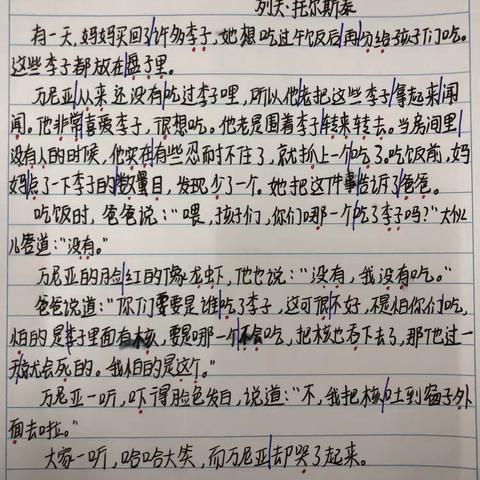 列夫·托尔斯泰
有一天,妈妈买回了许多李子,她想吃过午饭后再分给孩子们吃。
这些李子都放在盘子里。
万尼亚从来还没有吃过李子哩,所以他老把这些李子拿起来闻
闻。他非常喜爱李子,很想吃。他老是围着李子转来转去。当房间里
没有人的时候,他实在有些忍耐不住了,就抓上一个吃了。吃饭前,妈
妈点了一下李子的数量目,发现少了一个。她把这件事告诉了爸爸。
吃饭时,爸爸说:“喂,孩子们,你们哪一个吃了李子吗?”大伙
儿答道:“没有。”
万尼亚的脸红的像龙虾,他也说:“没有,我没有吃。”
爸爸说道:“你们要是谁吃了李子,这可很不好,不是怕你们吃,
怕的是李子里面有核,要是哪一个不会吃,把核也吞下去了,那他过一
天就会死的。我怕的是这个。”
万尼亚一听,吓得脸色发白,说道:“不,我把核吐到窗子外
面去啦。”
大家一听,哈哈大笑,而万尼亚却哭了起来。